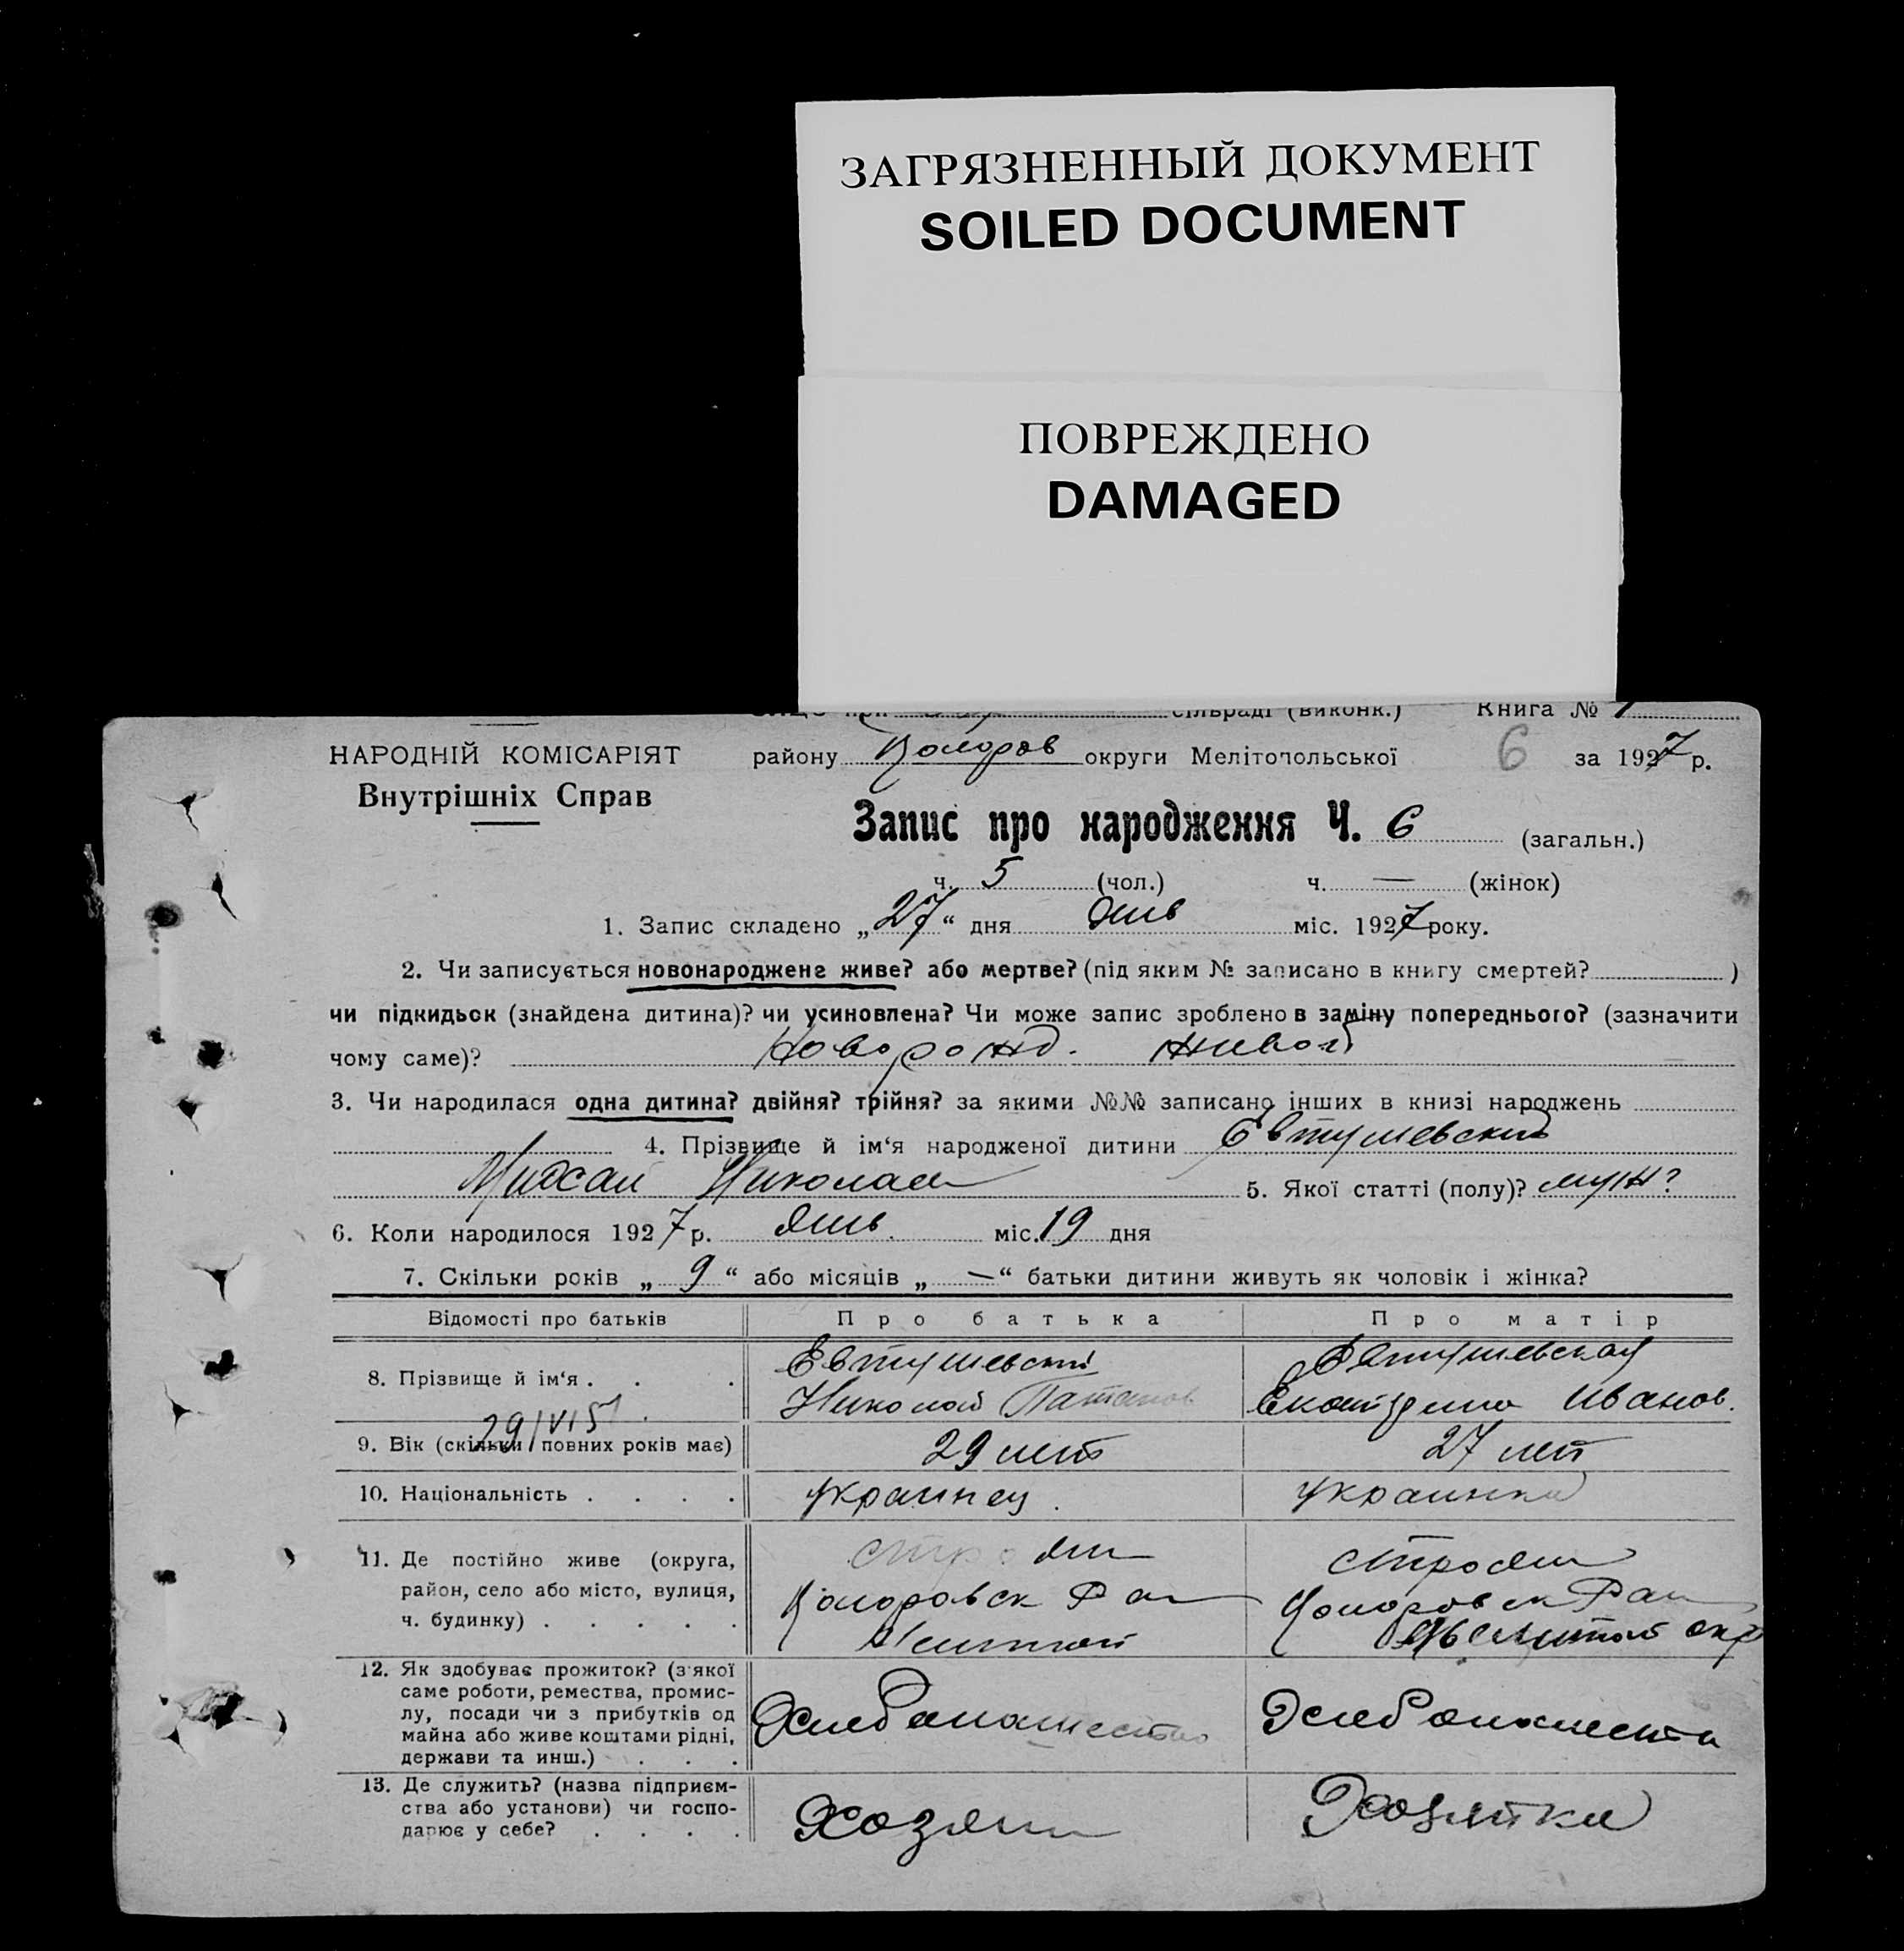 ЗАГРЯЗНЕННЫЙ ДОКУМЕНТ
SOILED DOCUMENT
ПОВРЕЖДЕНО
DAMAGED
сільраді (виконк.) Книга № 1
НАРОДНІЙ КОМІСАРІЯТ
Внутрішніх Справ
району округи Мелітопольської 6 за 1927 р.
Запис про народження Ч. 6 (загальн.)
ч. 5 (чол.) ч. — (жінок)
1. Запис складено „27“ дня янв міс. 1927 року.
2. Чи записується новонароджене живе? або мертве? (під яким № записано в книгу смертей? )
чи підкидьок (знайдена дитина)? чи усиновлена? Чи може запис зроблено в заміну попереднього? (зазначити
чому саме)?Новорожд. живой
3. Чи народилася одна дитина? двійня? трійня? за якими №№ записано інших в книзі народжень
4. Прізвище й ім‘я народженої дитини Евтушевский
Михаил Николаев 5. Якої статті (полу)? муж?
6. Коли народилося 1927 р. янв. міс. 19 дня
7. Скільки років „ 9 “ або місяців „ — “ батьки дитини живуть як чоловік і жінка?
Відомості про батьків Про батька Про матір
8. Прізвище й ім‘я . . . Евтушевский Евтушевская
Николай Екатерина Иванов.
29/VI 51
9. Вік (скільки повних років має) 29 лет 27 лет
10. Національність . . . . украинец . украинка
11. Де постійно живе (округа,
район, село або місто, вулиця,
ч. будинку) . . . . .
12. Як здобуває прожиток? (з‘якої
саме роботи, ремества, промис-
лу, посади чи з прибутків од
майна або живе коштами рідні,
держави та инш.) . . .
Хлебопашество Хлебопашество
13. Де служить? (назва підприєм-
ства або установи) чи госпо-
дарює у себе? . . . .
Хозяин Хозяйка